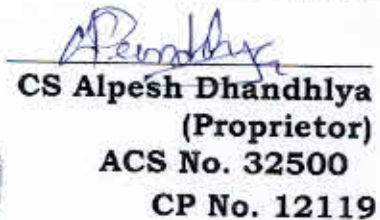 CS Alpesh Dhandhlya
(Proprietor)
ACS No. 32500
CP No. 12119